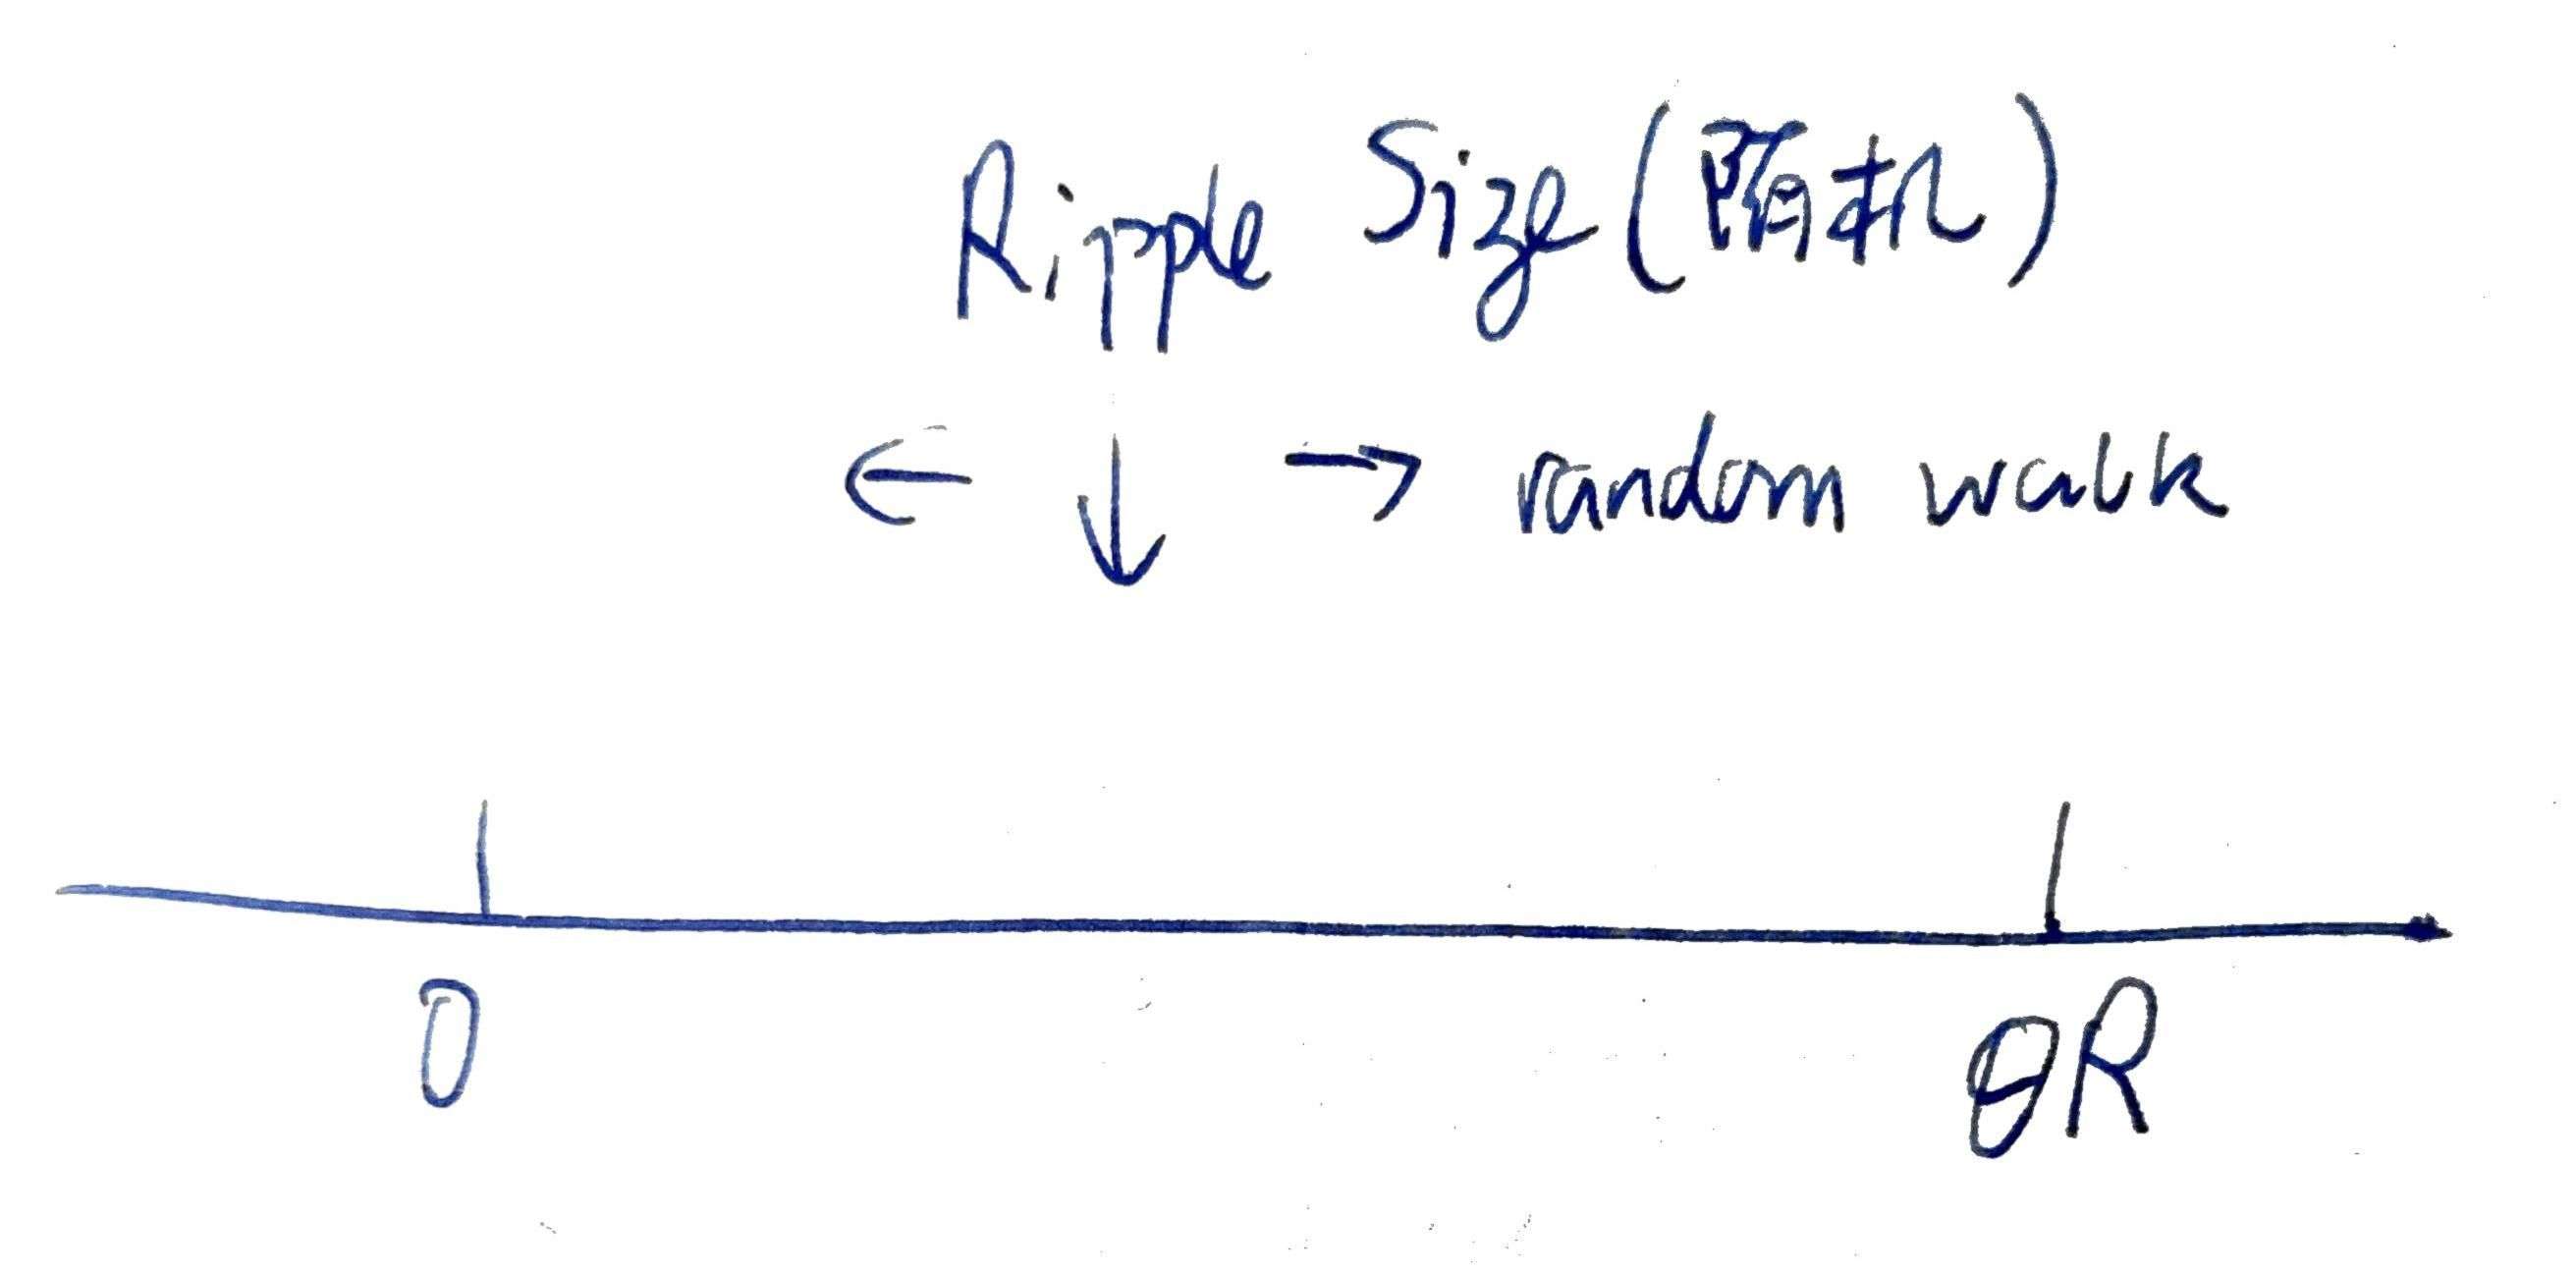 Ripple Size (随机)
← ↓ → random walk
0 θR